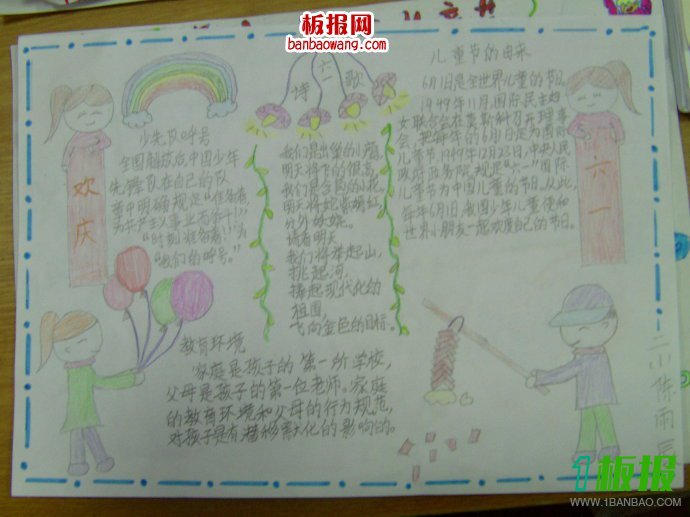 板报网
banbaowang.com
欢庆
少先队呼号
全国解放后,中国少年
先锋队在自己的队
章中明确规定“准备着,
为共产主义事业而奋斗!”
“时刻准备着!”为
“我们的呼号。”
六一
诗歌
我们是出巢的小鹰,
明天将飞的很高,
我们是含苞的小花,
明天将姹紫嫣红,
分外妖娆。
请看明天
我们将举起山,
挑起河,
捧起现代化的
祖国,
飞向金色的目标。
儿童节的由来
6月1日是全世界儿童的节日。
1949年11月,国际民主妇
女联合会在莫斯科召开理事
会,把每年的6月1日定为国际
儿童节1949年12月23日,中央人民
政府政务院规定“六一”国际
儿童节为中国儿童的节日。从此,
每年6月1日,我国少年儿童便和
世界小朋友一起欢度自己的节日。
六一
教育环境
家庭是孩子的第一所学校,
父母是孩子的第一位老师。家庭
的教育环境和父母的行为规范,
对孩子是有潜移默化的影响的。
二小陈雨
1板报
WWW.1BANBAO.COM